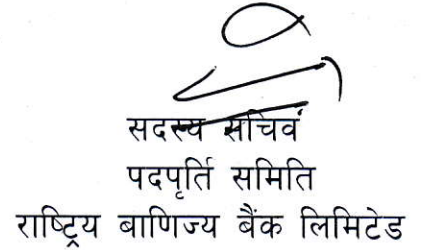 सदस्य सचिव
पदपूर्ति समिति
राष्ट्रिय बाणिज्य बैंक लिमिटेड